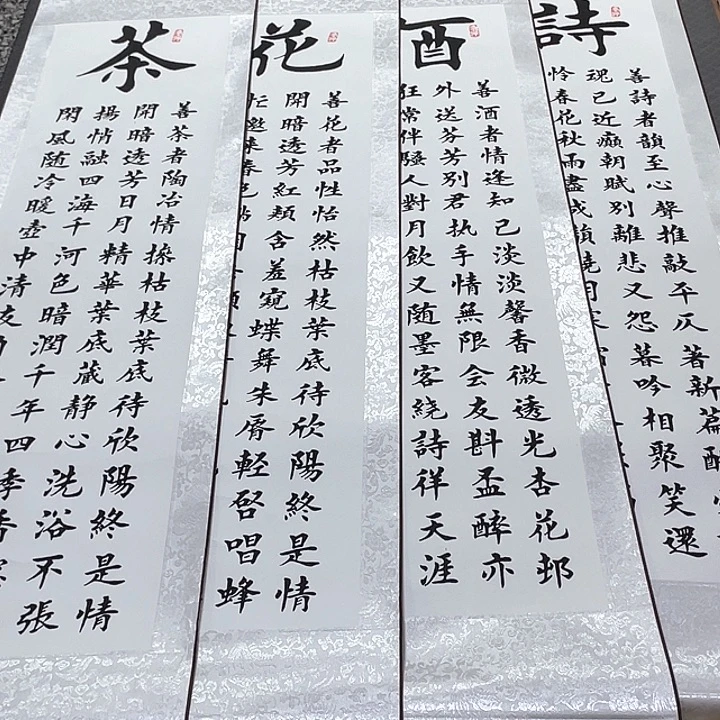 詩
善詩者韻至心聲推敲平仄著新篇
現已近癲朝賦別離悲又怨暮吟相聚笑還
怜春花秋雨盡成韻
酒
善酒者情逢知己淡淡馨香微透光杏花邨
外送芬芳別君执手情無限会友斟盃醉亦
狂常伴騷人對月飲又随墨客繞詩徉天涯
花
善花者品性怡然枯枝葉底待欣陽終是情
閑暗透芳紅頰含羞窺蝶舞朱脣輕啓唱蜂
忙邀来春色
茶
善茶者陶冶情操枯枝葉底待欣陽終是情
閑暗透芳日月精華葉底蔵静心洗浴不張
揚情融四海千河色暗潤千年四季香
閑風随冷暖壺中清友